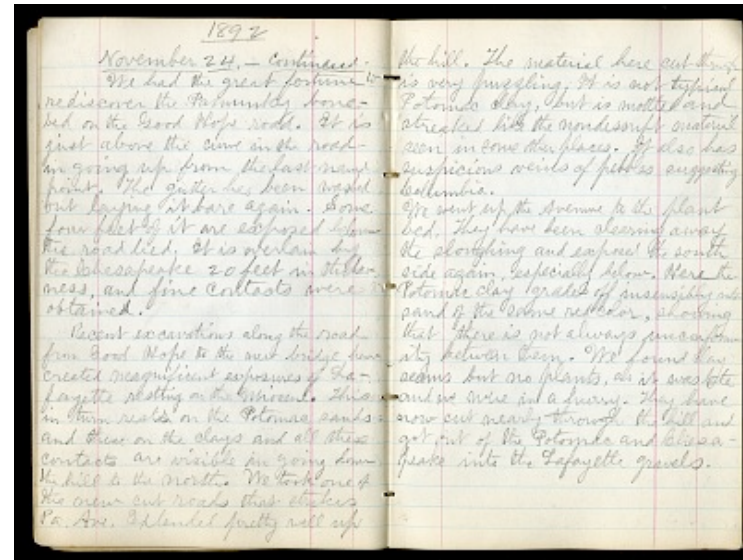 1892
November 24. – Continued.
We had the great fortune to
rediscover the Pamunkey bone-
bed on the Good Hope road. It is
just above the curve in the road
in going up from the last named
point. The gutter has been washed
out laying it bare again. Some
four feet of it are exposed below
the road bed. It is overlain by
the Chesapeake 20 feet in thick-
ness, and fine contacts were
obtained.
Recent excavations along the road
from Good Hope to the new bridge have
created magnificent exposures of La-
fayette resting on the Miocene. This
in turn rests on the Potomac sands
and these on the clays and all these
contacts are visible in going down
the hill to the north. We took one of
the new cut roads that strikes
Pa. Ave. Extended pretty well up
the hill. The material here cut through
is very puzzling. It is not typical
Potomac clay, but is mottled and
streaked like the nondescript material
seen in some other places. It also has
suspicious veins of pebbles suggesting
Columbia.
We went up the Avenue to the plant
bed. They have been clearing away
the sloughing and exposed the south
side again, especially below. Here the
Potomac clay grades off insensibly into
sand of the same red color, showing
that there is not always unconform-
ity between them. We found
seams but no plants, as it was late
and we were in a hurry. They have
now cut nearly through the hill and
got out of the Potomac and Chesa-
peake into the Lafayette gravels.